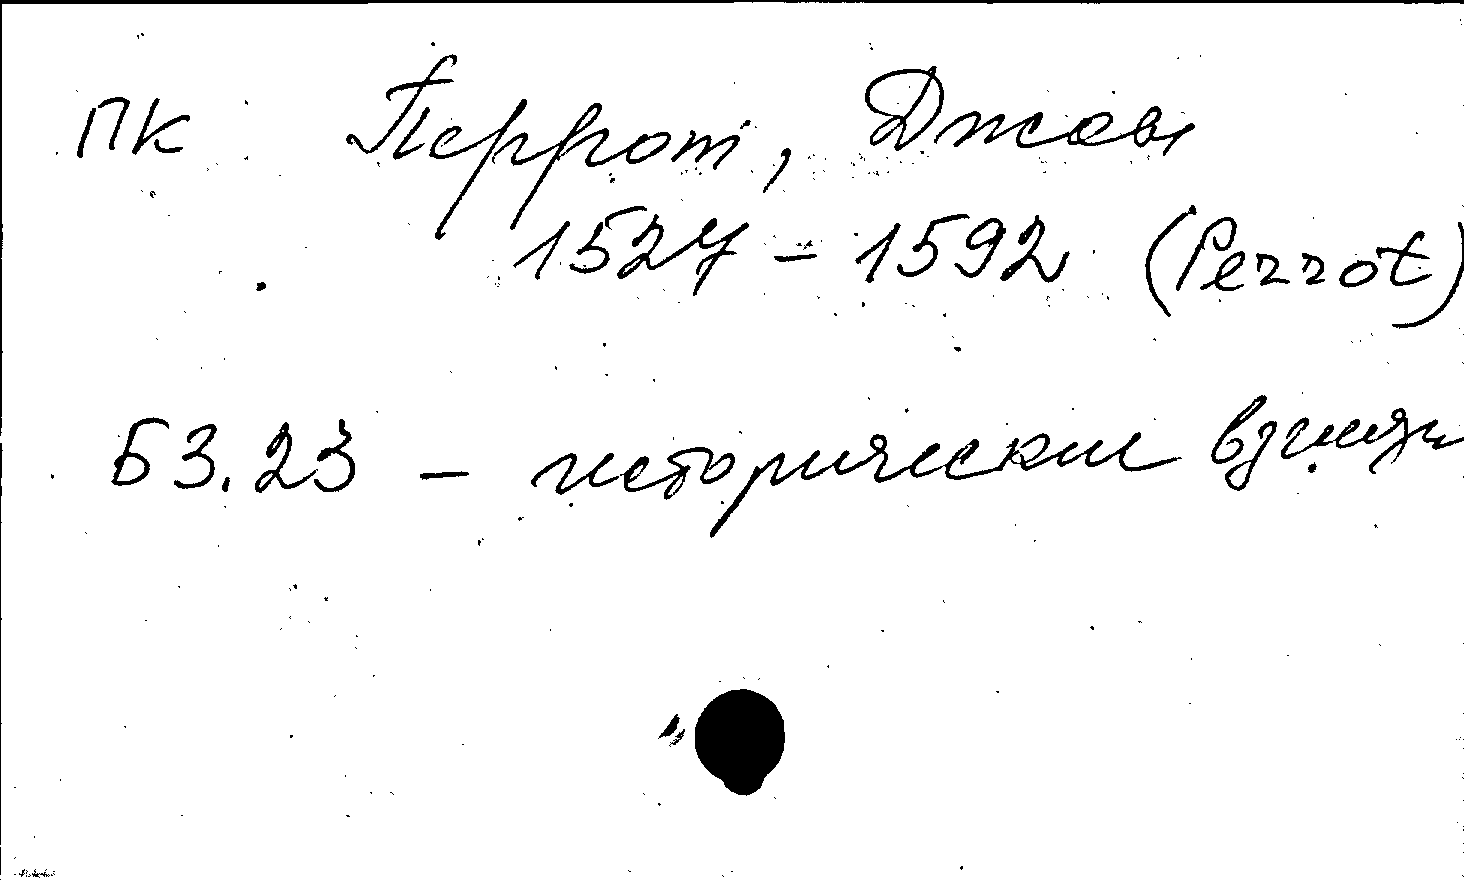 ПК Перрот, Джон
1527 – 1592 (Perrot)
Б3.23 – исторические взгляды